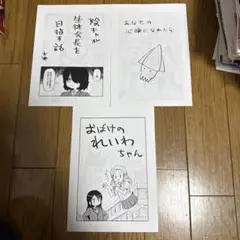 陰キャが
生徒会長を
目指す話
あなたの
心臓になれたら
おばけの
れいわ
ちゃん